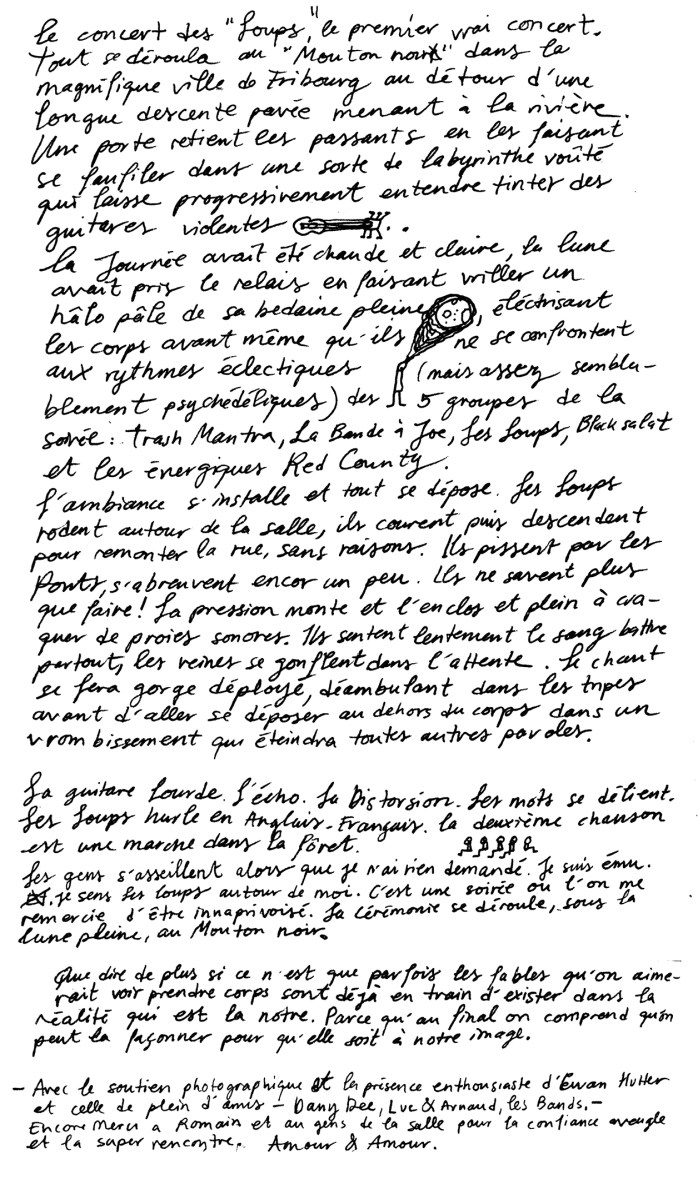 le concert des "Loups", le premier vrai concert.
Tout se déroula au "Mouton noir" dans la
magnifique ville de Fribourg au détour d'une
longue descente pavée menant à la rivière.
Une porte retient les passants en les faisant
se faufiler dans une sorte de labyrinthe voûté
qui laisse progressivement entendre tinter des
guitares violentes ..
La Journée avait été chaude et claire, la lune
avait pris le relais en faisant vriller un
hâlo pâle de sa bedaine pleine, éléctrisant
les corps avant même qu'ils ne se confrontent
aux rythmes éclectiques (mais assez sembla-
blement psychédéliques) des 5 groupes de la
soirée : Trash Mantra, La Bande à Joe, Les Loups, Black salat
et les énergiques Red County.
L'ambiance s'installe et tout se dépose. Les Loups
rodent autour de la salle, ils courent puis descendent
pour remonter la rue, sans raisons. Ils pissent par les
Ponts, s'abreuvent encor un peu. Ils ne savent plus
que faire! La pression monte et l'enclos et plein à cra-
quer de proies sonores. Ils sentent lentement le sang battre
partout, les veines se gonflent dans l'attente. Le chant
se fera gorge déployé, déambulant dans les tripes
avant d'aller se déposer au dehors du corps dans un
vrombissement qui éteindra toutes autres paroles.
La guitare Lourde. L'écho. La Distorsion. Les mots se délient.
Les Loups hurle en Anglais-Français. la deuxième chanson
est une marche dans la fôret.
Les gens s'asseillent alors que je n'ai rien demandé. Je suis ému.
Je sens les loups autour de moi. C'est une soirée où l'on me
remercie d'être innaprivoisé. La cérémonie se déroule, sous la
lune pleine, au Mouton noir.
Que dire de plus si ce n'est que parfois les fables qu'on aime-
rait voir prendre corps sont déjà en train d'exister dans la
réalité qui est la notre. Parce qu'au final on comprend qu'on
peut la façonner pour qu'elle soit à notre image.
- Avec le soutien photographique et la présence enthousiaste d'Ewan Hutter
et celle de plein d'amis - Dany Dee, Luc & Arnaud, les Bands. -
Encore Merci a Romain et au gens de la salle pour la confiance aveugle
et la super rencontre. Amour & Amour.